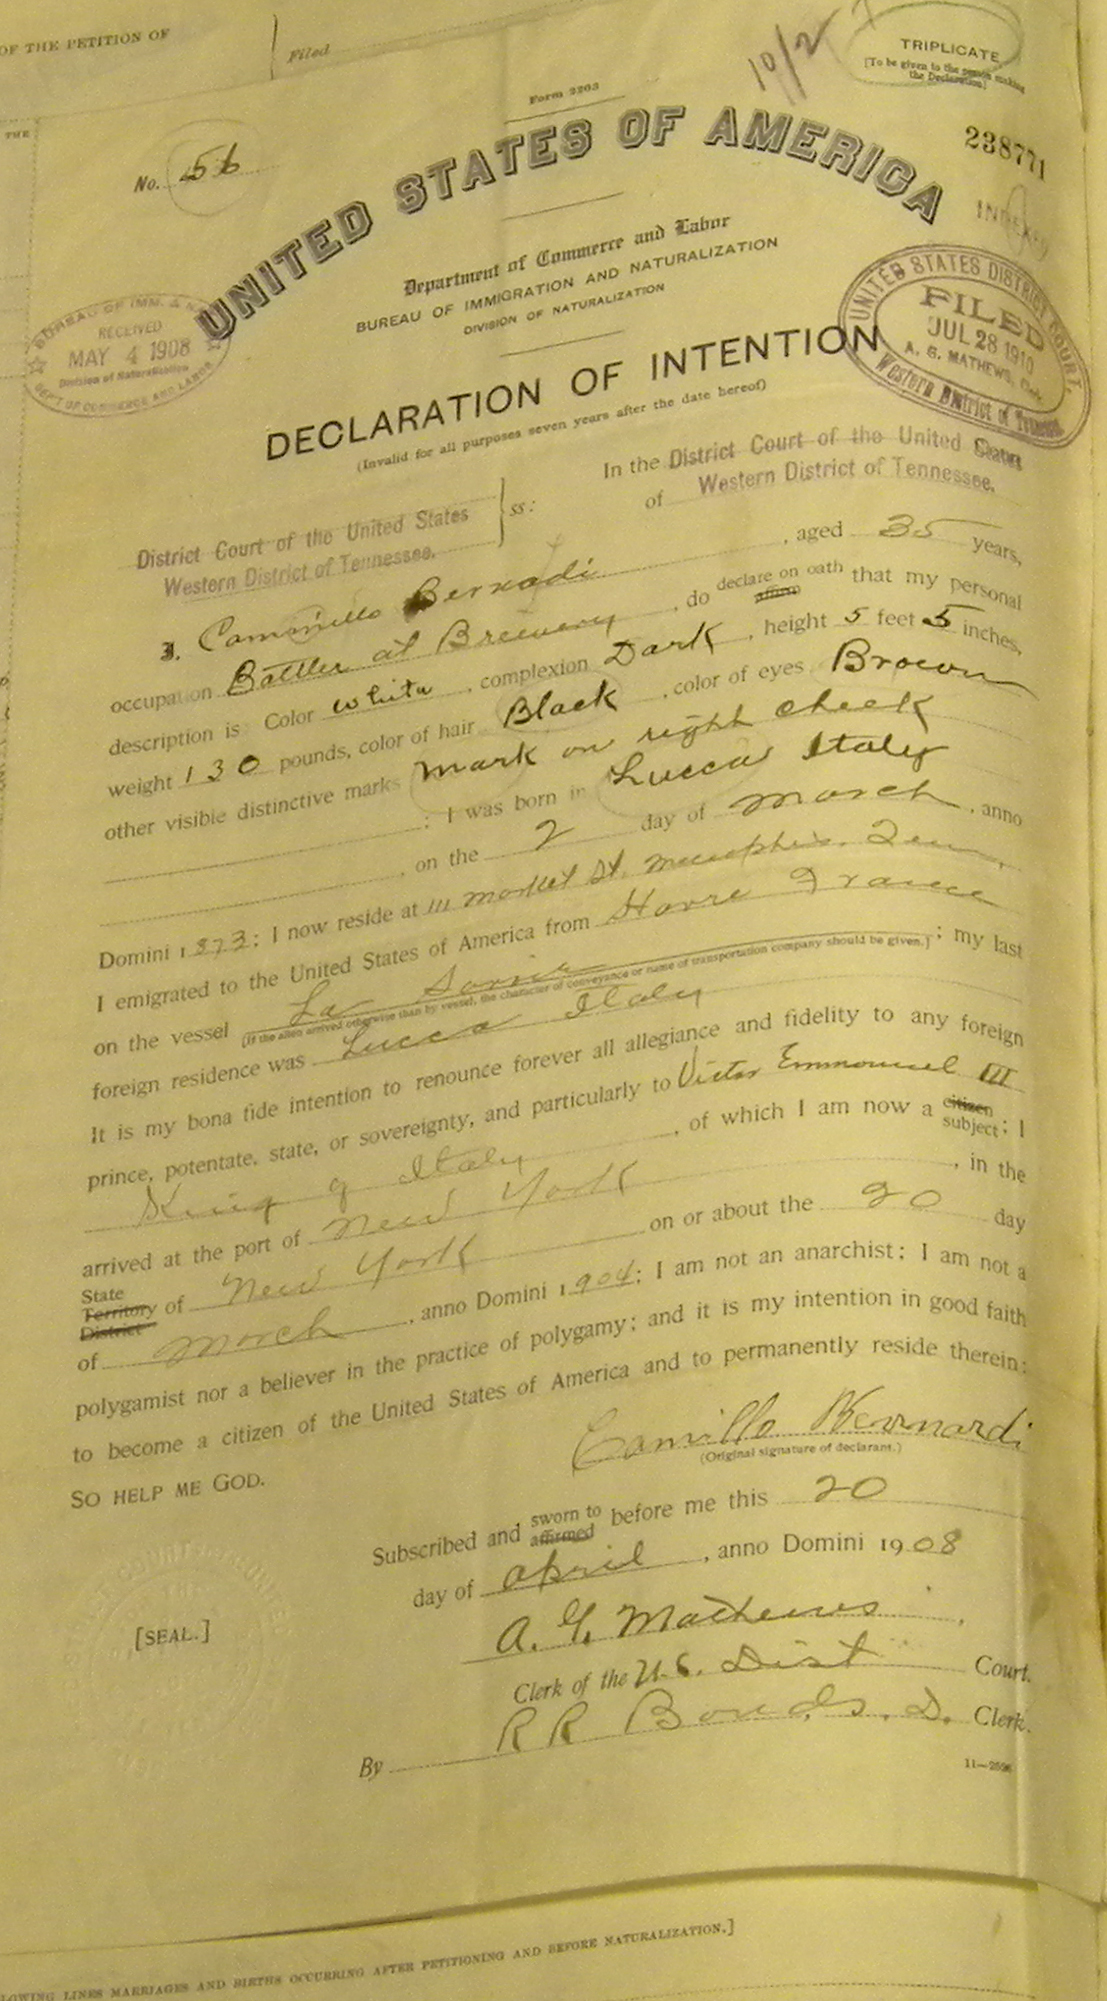 OF THE PETITION OF
Filed
10/2
TRIPLICATE
[To be given to the person making
the Declaration]
Form 2203
THE
No. 56
UNITED STATES OF AMERICA
238771
INDEXED
Department of Commerce and Labor
BUREAU OF IMMIGRATION AND NATURALIZATION
DIVISION OF NATURALIZATION
BUREAU OF IMM. & NAT.
RECEIVED
MAY 4 1908
Division of Naturalization
DEPT OF COMMERCE AND LABOR
UNITED STATES DISTRICT COURT,
FILED
JUL 28 1910
A. G. MATHEWS, Clerk
Western District of Tennessee
DECLARATION OF INTENTION
(Invalid for all purposes seven years after the date hereof)
In the District Court of the United States
of Western District of Tennessee.
District Court of the United States
Western District of Tennessee.
ss:
I, Cammillo Bernadi, aged 35 years,
occupation Bottler at Brewery, do declare on oath affirm that my personal
description is: Color white, complexion Dark, height 5 feet 5 inches,
weight 130 pounds, color of hair Black, color of eyes Brown
other visible distinctive marks mark on right cheek
; I was born in Lucca Italy
, on the 2 day of March, anno
Domini 1873; I now reside at 111 Market St. Memphis, Tenn,
I emigrated to the United States of America from Havre France
on the vessel La Savoie; my last
(If the alien arrived otherwise than by vessel, the character of conveyance or name of transportation company should be given.)
foreign residence was Lucca Italy
It is my bona fide intention to renounce forever all allegiance and fidelity to any foreign
prince, potentate, state, or sovereignty, and particularly to Victor Emmanuel III
King of Italy, of which I am now a citizen subject; I
arrived at the port of New York, in the
State Territory District of New York on or about the 20 day
of March, anno Domini 1904; I am not an anarchist; I am not a
polygamist nor a believer in the practice of polygamy; and it is my intention in good faith
to become a citizen of the United States of America and to permanently reside therein:
SO HELP ME GOD.
Camillo Bernardi
(Original signature of declarant.)
Subscribed and sworn to affirmed before me this 20
day of April, anno Domini 1908
[SEAL.]
A. G. Mathews,
Clerk of the U.S. Dist Court.
By R R Bonds, D. Clerk.
LOWING LINES MARRIAGES AND BIRTHS OCCURRING AFTER PETITIONING AND BEFORE NATURALIZATION.]